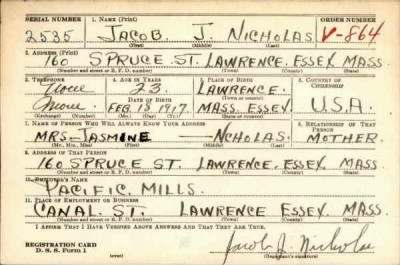 SERIAL NUMBER 1. NAME (Print) ORDER NUMBER
2535 JACOB J. NICHOLAS V-864
(First) (Middle) (Last)
2. ADDRESS (Print)
160 SPRUCE ST. LAWRENCE ESSEX MASS.
(Number and street or R. F. D. number) (Town) (County) (State)
3. TELEPHONE 4. AGE IN YEARS 5. PLACE OF BIRTH 6. COUNTRY OF CITIZENSHIP
None 23 LAWRENCE
(Town or county)
None DATE OF BIRTH
FEB. 13 1917 MASS. ESSEX U.S.A.
(Exchange) (Number) (Mo.) (Day) (Yr.) (State or country)
7. NAME OF PERSON WHO WILL ALWAYS KNOW YOUR ADDRESS 8. RELATIONSHIP OF THAT PERSON
MRS. JASMINE NCHOLAS. MOTHER.
(Mr., Mrs., Miss) (First) (Middle) (Last)
9. ADDRESS OF THAT PERSON
160 SPRUCE ST LAWRENCE. ESSEX. MASS
(Number and street or R. F. D. number) (Town) (County) (State)
10. EMPLOYER'S NAME
PACIFIC. MILLS.
11. PLACE OF EMPLOYMENT OR BUSINESS
CANAL ST. LAWRENCE ESSEX. MASS
(Number and street or R. F. D. number) (Town) (County) (State)
I AFFIRM THAT I HAVE VERIFIED ABOVE ANSWERS AND THAT THEY ARE TRUE.
REGISTRATION CARD
D. S. S. Form 1 Jacob J. Nicholas
(Registrant's signature)